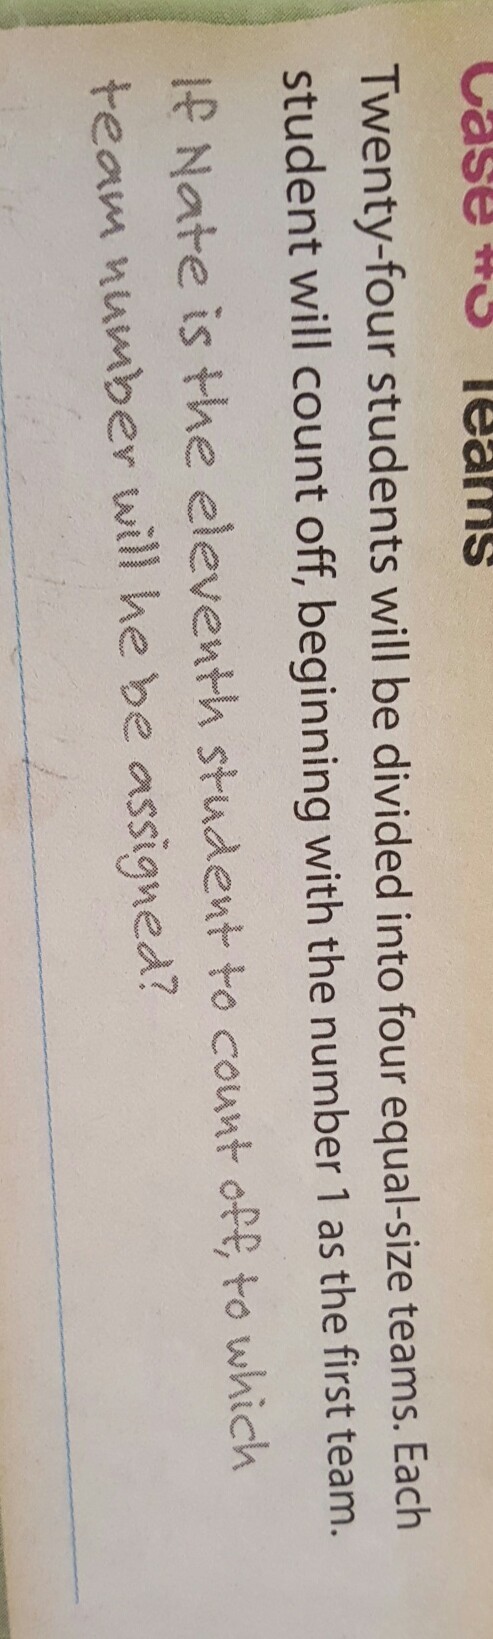 Case #3 Teams
Twenty-four students will be divided into four equal-size teams. Each
student will count off, beginning with the number 1 as the first team.
If Nate is the eleventh student to count off, to which
team number will he be assigned?